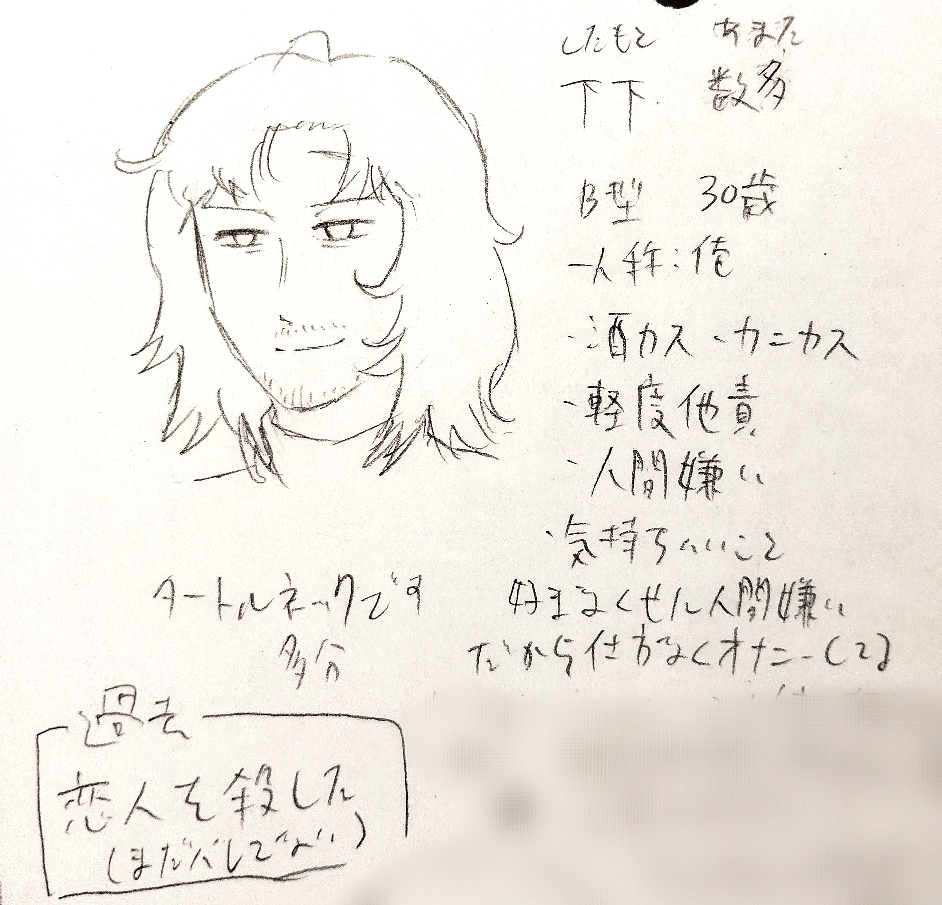 したもと　あまた
下下　数多
B型　30歳
一人称：俺
・酒カス・カニカス
・軽度他責
・人間嫌い
・気持ちいいこと
好きなくせに人間嫌い
だから仕方なくオナニーしてる
タートルネックです
多分
過去
恋人を殺した
(まだバレてない)